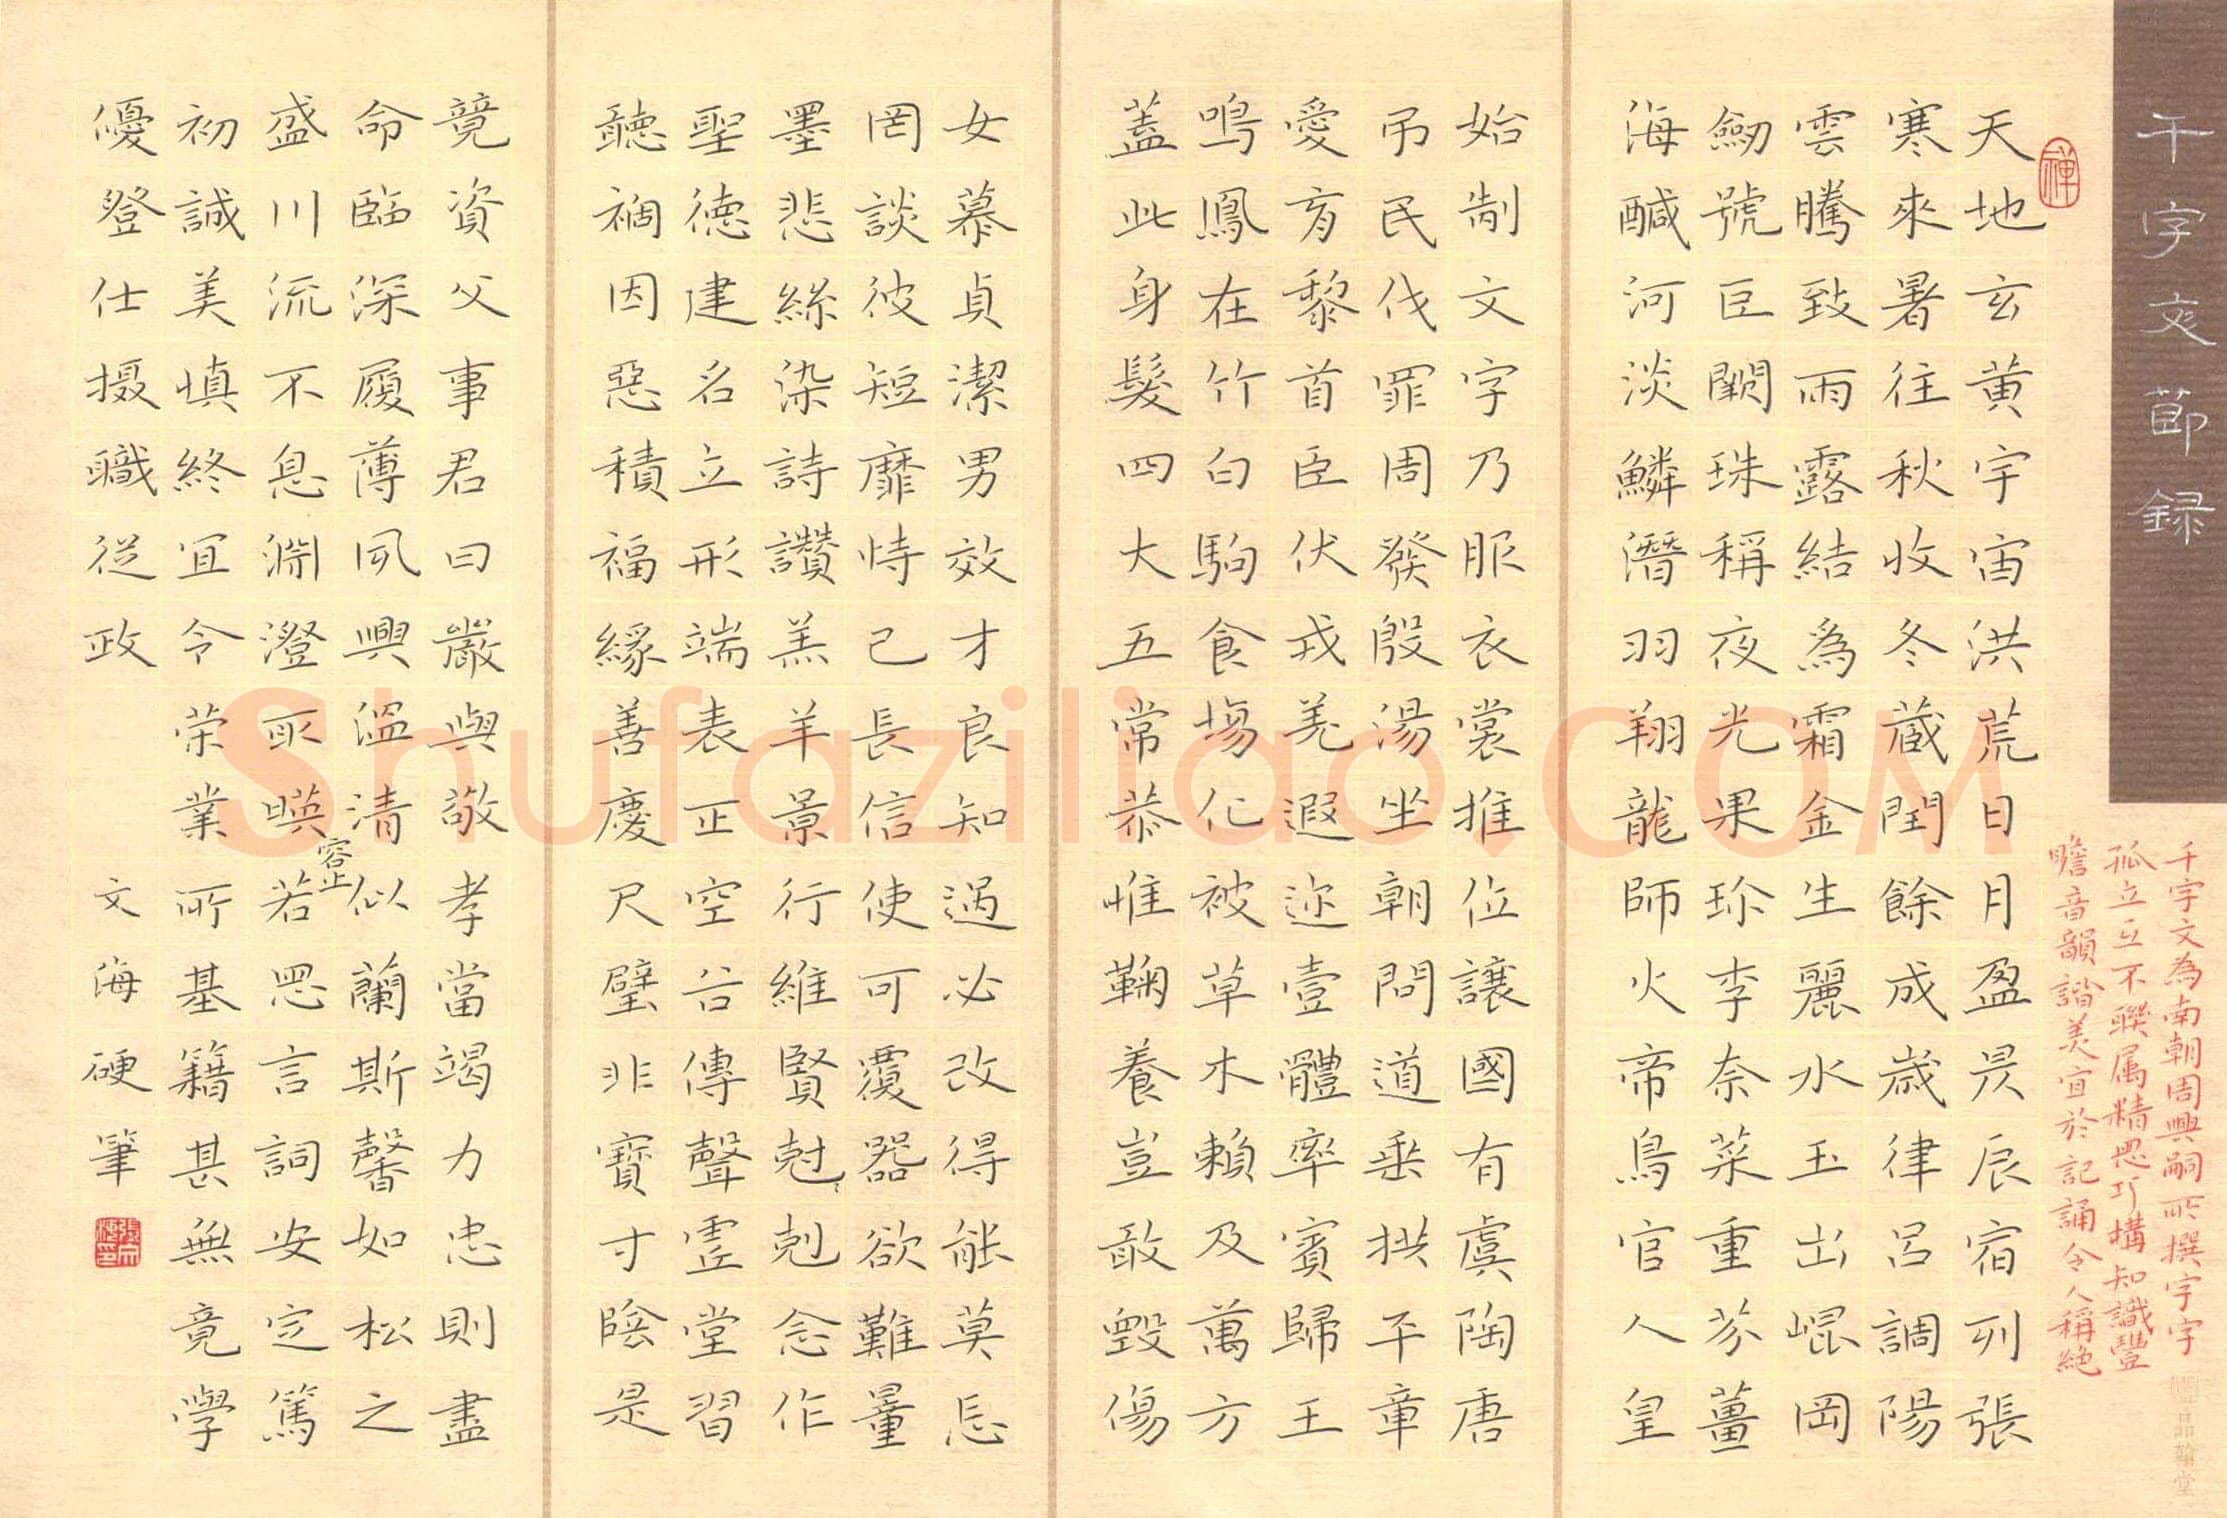 千字文節録
千字文為南朝周興嗣所撰字字
孤立互不聯属精思巧構知識豐
瞻音韻諧美宜於記誦令人稱絶
天地玄黄宇宙洪荒日月盈昃辰宿列張
寒來暑往秋收冬藏閏餘成歲律吕調陽
雲騰致雨露結為霜金生麗水玉出崐岡
劒號巨闕珠稱夜光果珍李奈菜重芥薑
海醎河淡鱗潛羽翔龍師火帝鳥官人皇
始制文字乃服衣裳推位讓國有虞陶唐
弔民伐罪周發殷湯坐朝問道垂拱平章
愛育黎首臣伏戎羌遐迩壹體率賓歸王
鳴鳳在竹白駒食場化被草木賴及萬方
蓋此身髮四大五常恭惟鞠養豈敢毀傷
女慕貞潔男效才良知過必改得能莫忘
罔談彼短靡恃己長信使可覆器欲難量
墨悲絲染詩讚羔羊景行維賢尅剋念作
聖德建名立形端表正空谷傳聲虛堂習
聽禍因惡積福緣善慶尺璧非寶寸陰是
競資父事君曰嚴與敬孝當竭力忠則盡
命臨深履薄夙興温清似蘭斯馨如松之
盛川流不息淵澄取暎容止若思言詞安定篤
初誠美慎終宜令榮業所基籍甚無竟學
優登仕摄職從政
文海硬筆
Shufaziliao.COM